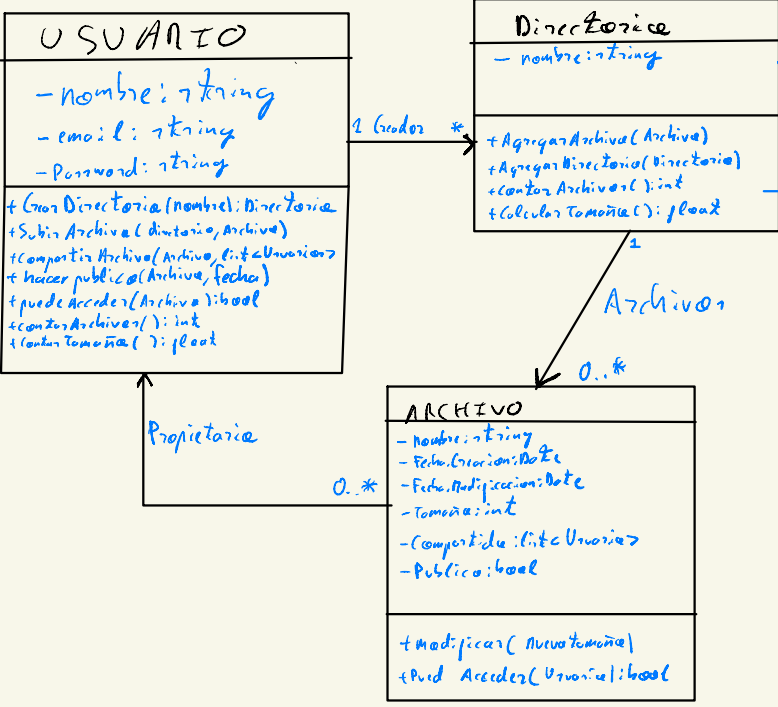 USUARIO
- nombre: string
- email: string
- Password: string
+ Crear Directorio(nombre): Directorio
+ Subir Archivo(directorio, Archivo)
+ Compartir Archivo(Archivo, list<Usuarios>
+ hacer publico(Archivo, fecha)
+ puede Acceder(Archivo): bool
+ contar Archivos(): int
+ Contar Tamaño(): float
1 Creador *
Directorio
- nombre: string
+ Agregar Archivo(Archivo)
+ Agregar Directorio(Directorio)
+ Contar Archivos(): int
+ Calcular Tamaño(): float
1
Archivos
0..*
Propietario
0..*
ARCHIVO
- nombre: string
- Fecha.Creacion: Date
- Fecha.Modificacion: Date
- Tamaño: int
- Compartido: list<Usuario>
- Publico: bool
+ modificar(Nuevo tamaño)
+ Pued Acceder(Usuario): bool